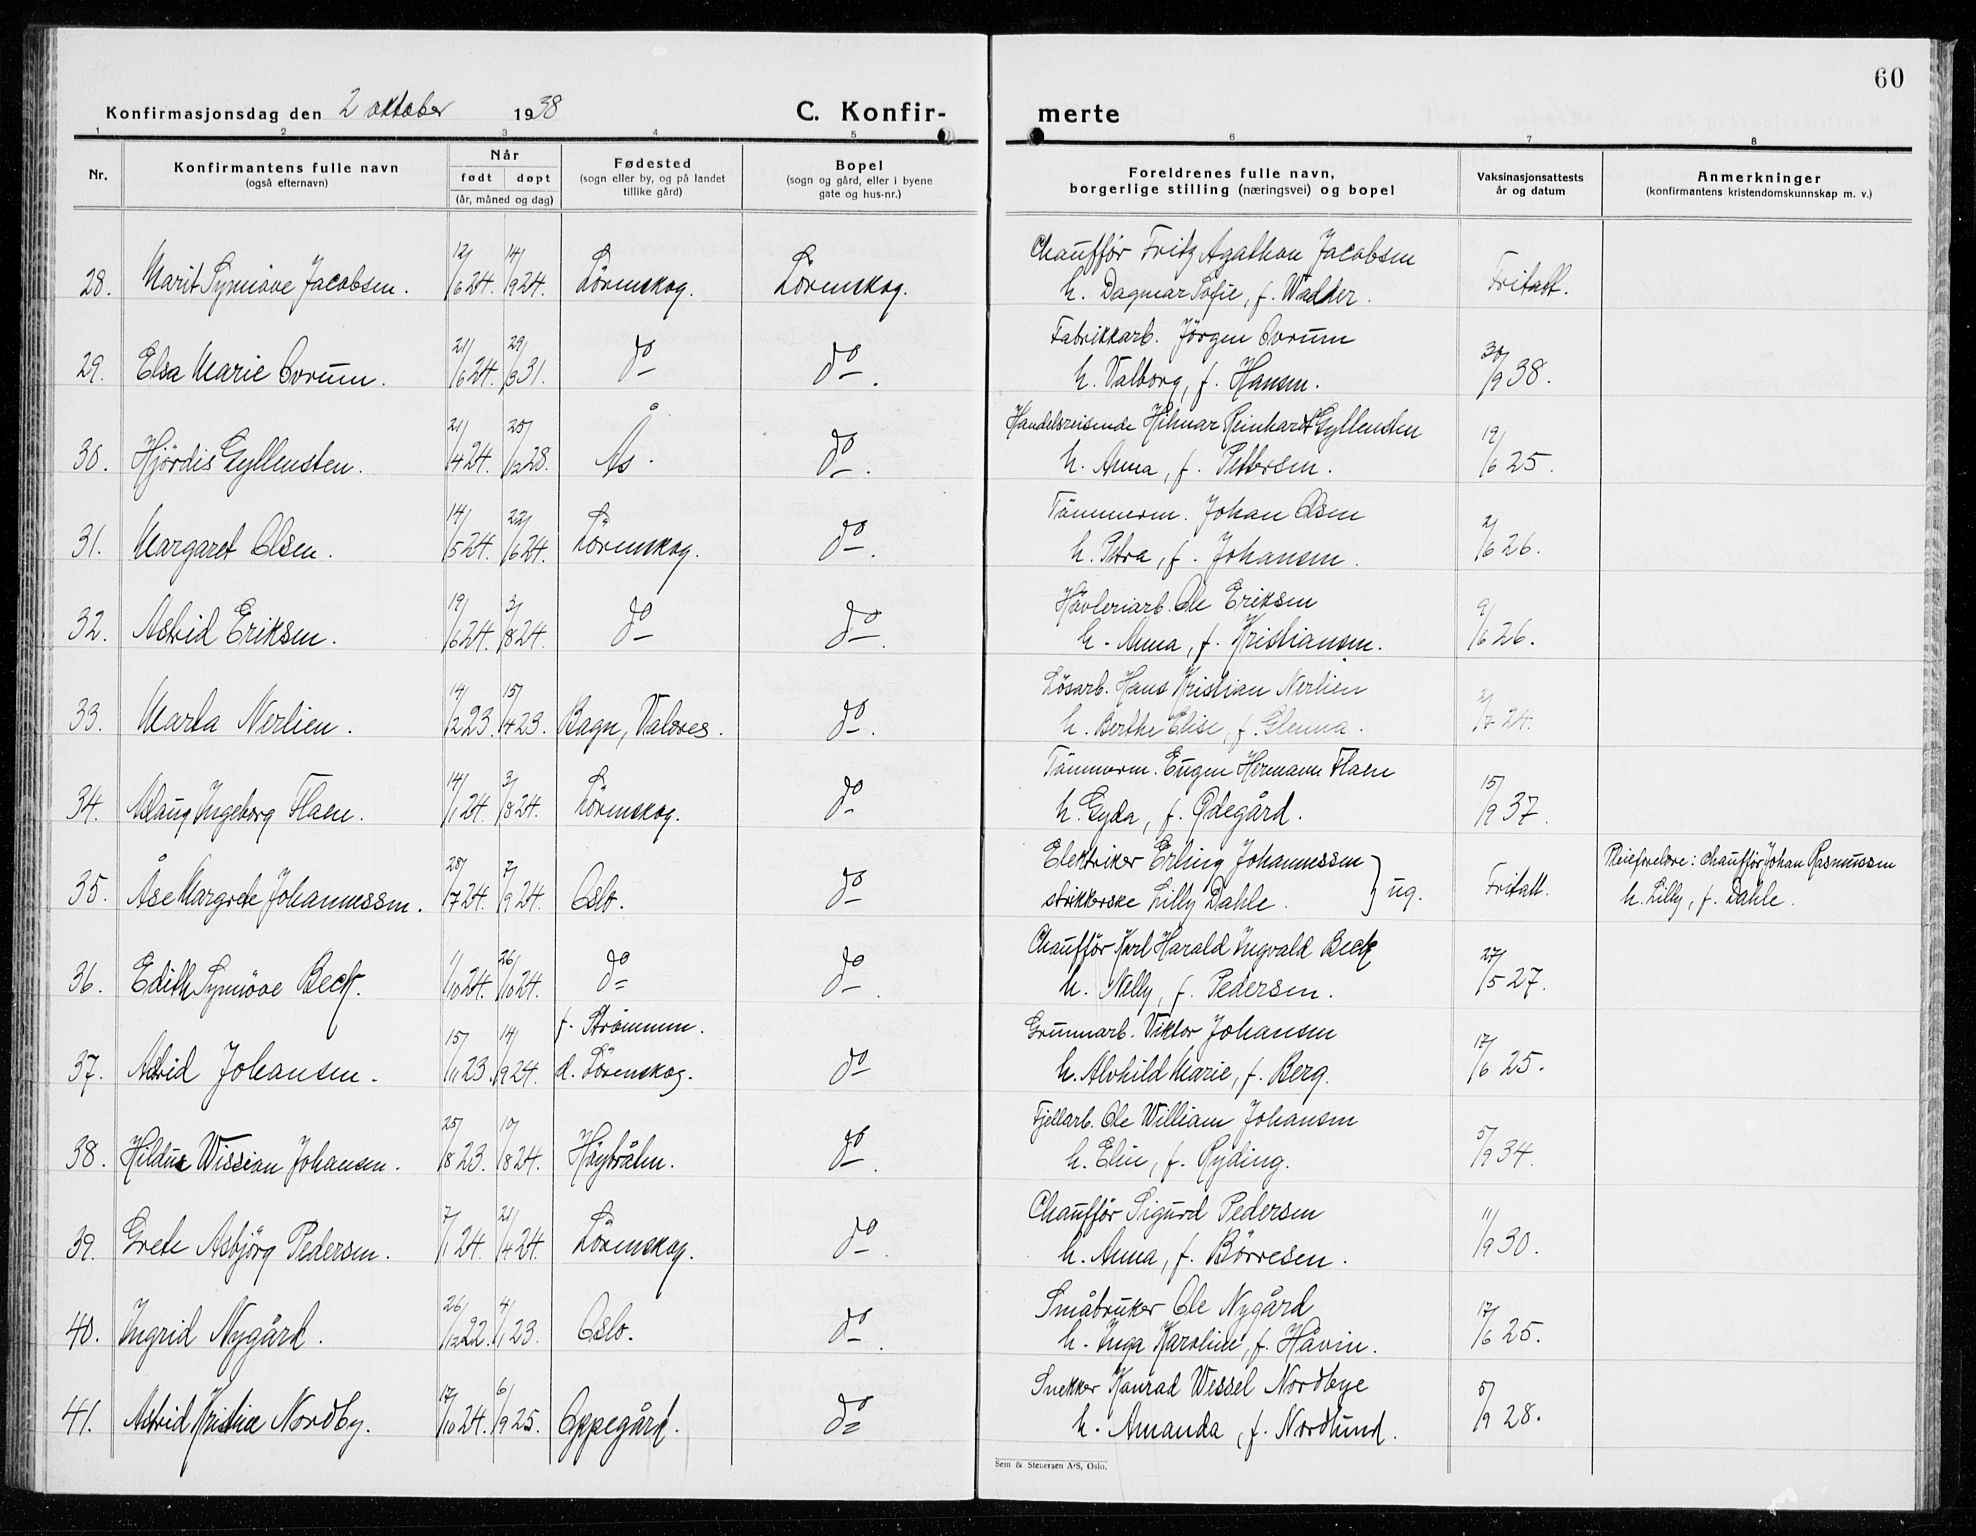 60
Konfirmasjonsdag den 2 oktober 1938 C. Konfir- merte
1 2 3 4 5 6 7 8
Nr. Konfirmantens fulle navn (også efternavn) Når født døpt (år, måned og dag) Fødested (sogn eller by, og på landet tillike gård) Bopel (sogn og gård, eller i byene gate og hus-nr.) Foreldrenes fulle navn, borgerlige stilling (næringsvei) og bopel Vaksinasjonsattests år og datum Anmerkninger (konfirmantens kristendomskunnskap m. v.)
Chauffør Fritz Agathon Jacobsen
28. Marit Synnöve Jacobsen. 12/6 24. 14/9 24. Lörenskog. Lörenskog. h. Dagmar Sofie, f. Walder. Fritatt.
Fabrikkarb. Jörgen Ovrum
29. Elsa Marie Ovrum. 21/6 24. 29/3 31. do do. h. Valborg, f. Hansen. 30/9 38.
Handelsreisende Hilmar Reinhardt Gyllensten
30. Hjördis Gyllensten. 21/4 24. 25/12 28. Ås. do. h. Anna, f. Pettersen. 19/6 25.
Tömmerm. Johan Olsen
31. Margaret Olsen. 14/5 24. 22/6 24. Lörenskog. do. h. Petra, f. Johansen. 2/6 26.
Hövleriarb. Ole Eriksen
32. Astrid Eriksen. 19/6 24. 3/8 24. do do. h. Anna, f. Kristiansen. 9/6 26.
Lösarb. Hans Kristian Nerlien
33. Marta Nerlien. 14/2 23. 15/4 23. Bagn, Valdres. do. h. Berthe Elise, f. Glenna. 2/7 24.
Tömmerm. Eugen Hermann Flaen
34. Aslaug Ingeborg Flaen. 14/1 24. 3/8 24. Lörenskog. do h. Gyda, f. Ødegård. 15/9 37.
Elektriker Erling Johannessen Pleieforeldre: Chauffør Johan Rasmussen
35. Åse Margrete Johannessen. 28/7 24. 7/9 24. Oslo. do strikkerske Lilly Dahle. } ug. Fritatt. h. Lilly, f. Dahle.
Chauffør Karl Harald Ingvald Beck
36. Edith Synnöve Beck. 1/10 24. 26/10 24. do do. h. Nelly, f. Pedersen. 27/5 27.
f. Strömmen. Grunnarb. Viktor Johansen
37. Astrid Johansen. 15/11 23. 14/9 24. d. Lörenskog. do h. Alvhild Marie, f. Berg. 17/6 25.
Fjellarb. Ole William Johansen
38. Johansen. 25/8 23. 10/8 24. Höybråten. do h. Elin, f. Ryding. 5/9 34.
Chauffør Sigurd Pedersen
39. Grete Asbjörg Pedersen. 7/1 24. 21/4 24. Lörenskog. do. h. Anna, f. Börresen. 11/9 30.
Småbruker Ole Nygård
40. Ingrid Nygård. 26/12 22. 4/1 23. Oslo. do. h. Inga Karoline, f. Håvin. 17/6 25.
Snekker Konrad Wessel Nordbye
41. Astrid Kristine Nordby. 17/10 24. 6/9 25. Oppegård. do h. Amanda, f. Nordlund. 5/9 28.
Sem & Stenersen A/S, Oslo.